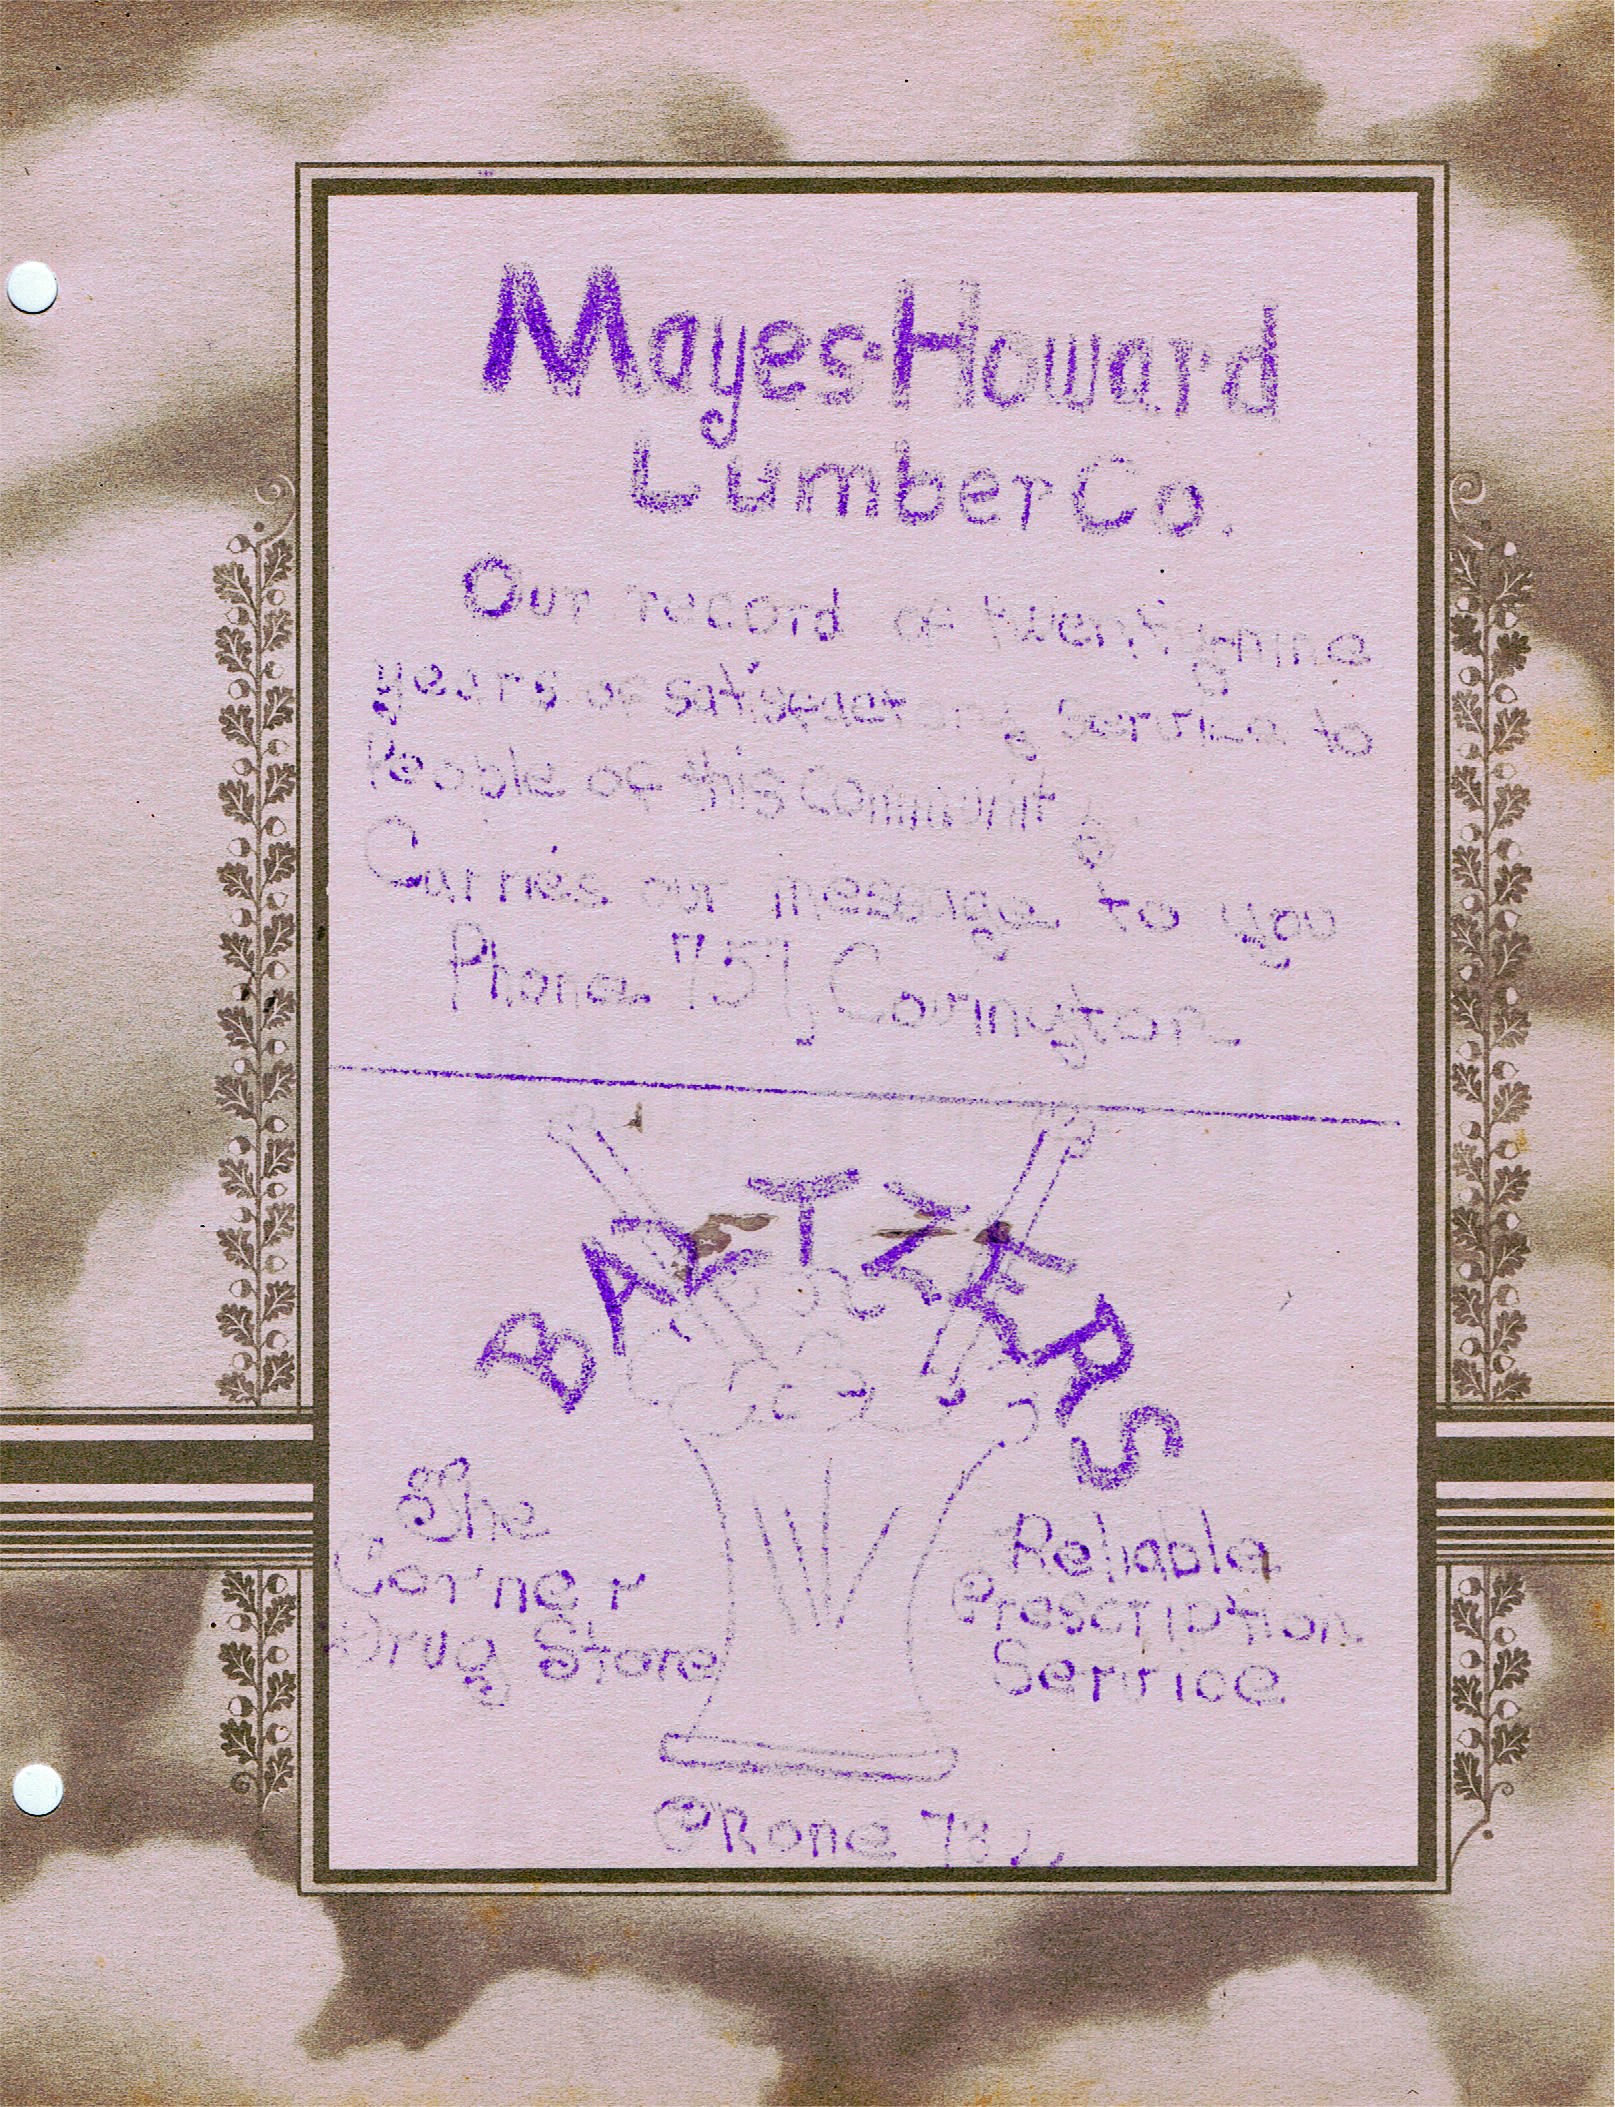 Mayes-Howard
Lumber Co.
Our record of twentynine
years of satisfactory service to
People of this community
Carries our message to you
Phone 757, Covington
BALTZERS
The
Corner
Drug Store
Reliable
Prescription
Service
Phone